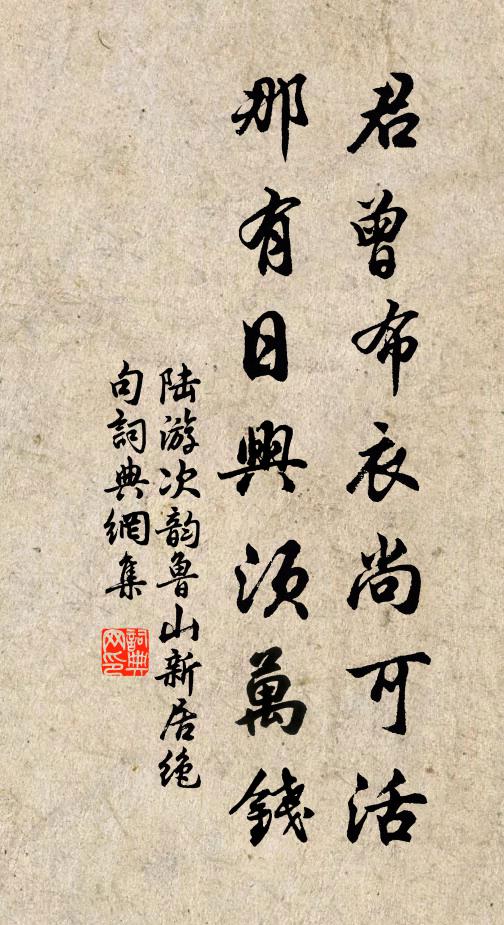 君曾布衣尚可活
那有日興須萬錢
陆游次韵鲁山新居绝
句詞典網集
詞典
网印